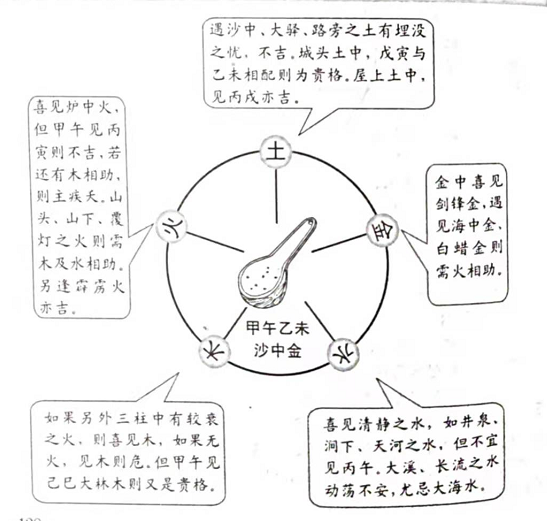 遇沙中、大驿、路旁之土有埋没
之忧，不吉。城头土中，戊寅与
乙未相配则为贵格。屋上土中，
见丙戌亦吉。
喜见炉中火，
但甲午见丙
寅则不吉，若
还有木相助，
则主疾夭。山
头、山下、覆
灯之火则需
木及水相助。
另逢霹雳火
亦吉。
土
火
金
金中喜见
剑锋金，遇
见海中金、
白蜡金则
需火相助。
甲午乙未
沙中金
木
水
如果另外三柱中有较衰
之火，则喜见木，如果无
火，见木则危。但甲午见
己巳大林木则又是贵格。
喜见清静之水，如井泉、
涧下、天河之水，但不宜
见丙午。大溪、长流之水
动荡不安，尤忌大海水。